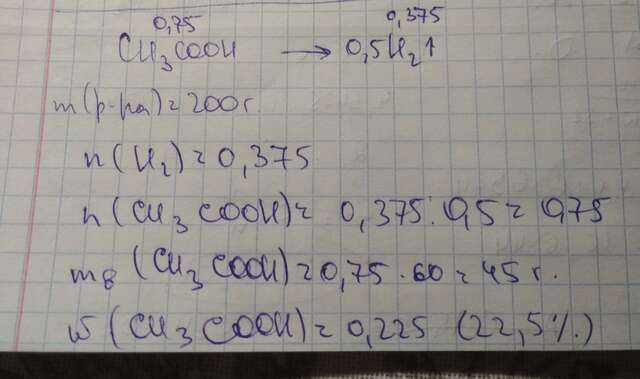 0,75 0,375
CH₃COOH → 0,5H₂↑
m(р-ра)=200г.
n(H₂)=0,375
n(CH₃COOH)= 0,375:0,5=0,75
mв(CH₃COOH)=0,75·60=45г.
ω(CH₃COOH)=0,225 (22,5%)